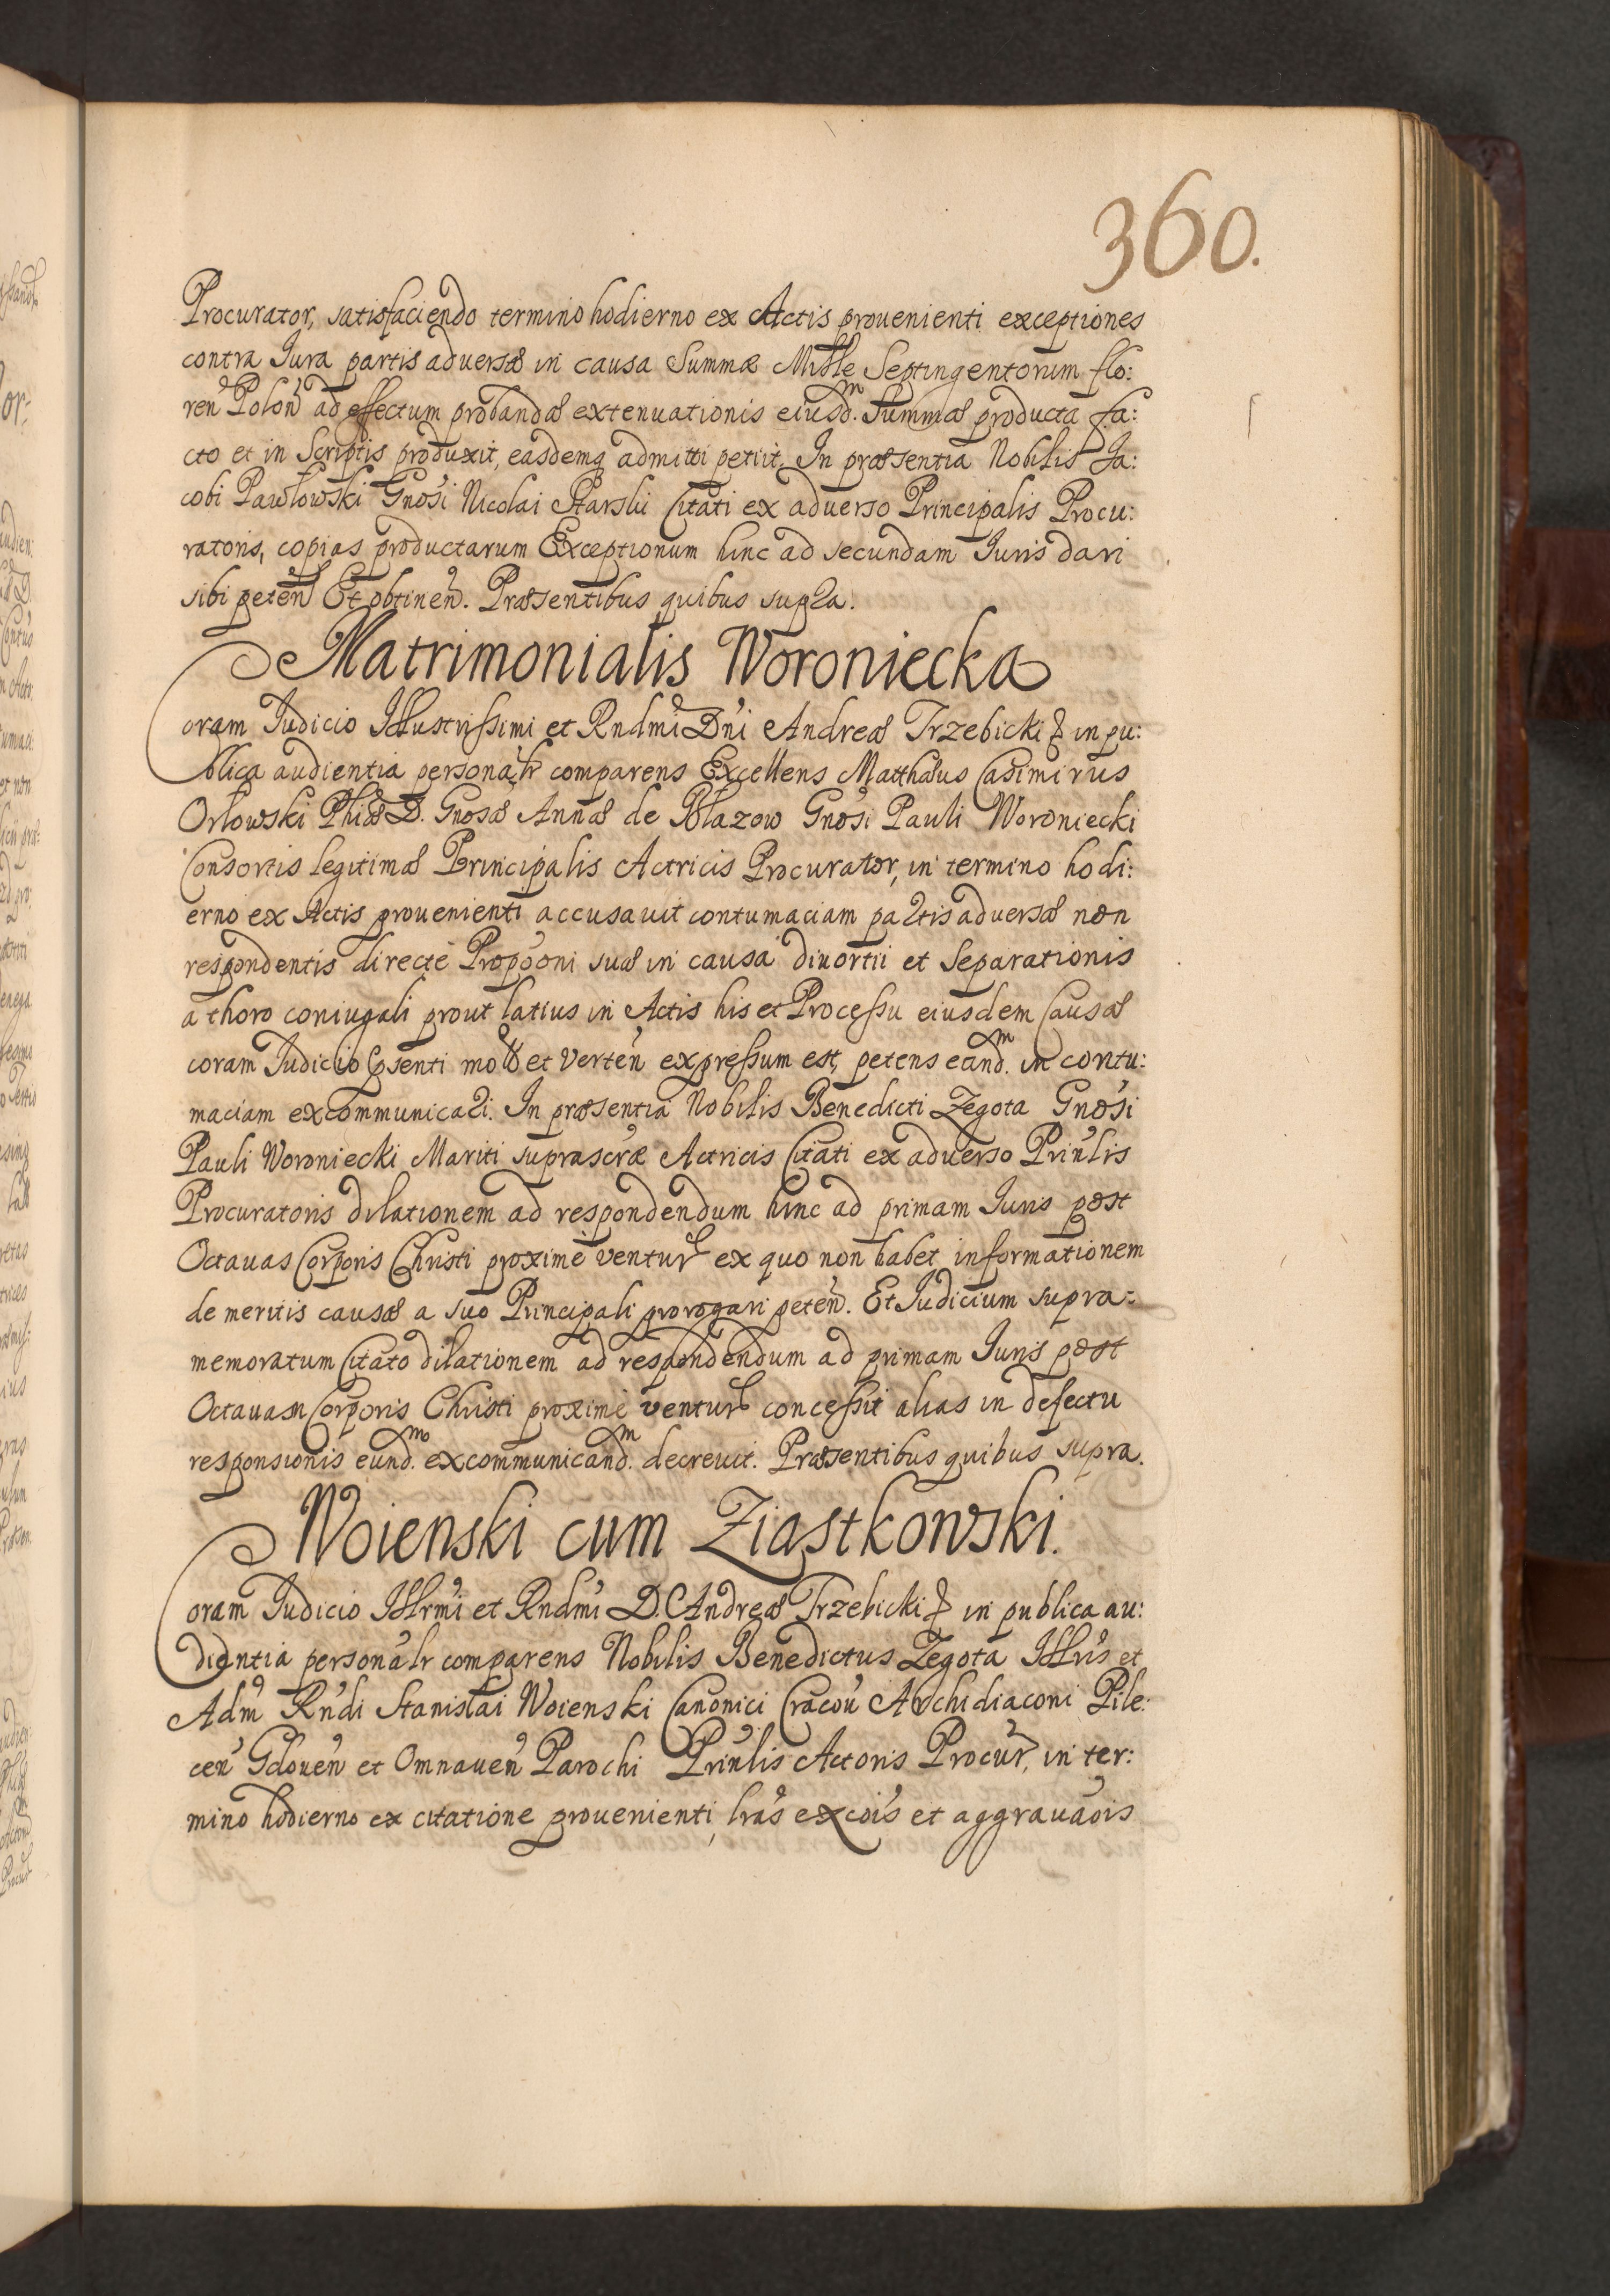 360.
Procurator, satisfaciendo termino hodierno ex Actis prouenienti exceptiones
contra Jura partis aduersæ in causa Summæ Mille Septingentorum flo:
ren Polon ad effectum probandæ extenuationis eiusd.m Summæ producta fa:
cto et in Scriptis produxit, easdemq admitti petiit. In præsentia Nobilis Ja:
cobi Pawłowski Gnosi Nicolai Starski Citati ex aduerso Principalis Procu:
ratoris, copias productarum Exceptionum hinc ad secundam Juris dari
sibi peten Et obtinen. Præsentibus quibus supra.
Matrimonialis Woroniecka
Coram Judicio Illustrissimi et Rndmi Dni Andreæ Trzebicki & in pu:
blica audientia personalr comparens Excellens Matthæus Casimirus
Orłowski Phiæ D. Gnosæ Annæ de Błazow Gnosi Pauli Woroniecki
Consortis legitimæ Principalis Actricis Procurator, in termino hodi:
erno ex Actis prouenienti accusauit contumaciam partis aduersæ non
respondentis directe Propooni suæ in causa diuortii et Separationis
a thoro coniugali prout latius in Actis his et Processu eiusdem Causæ
coram Judicio psenti mot et Verten expressum est, petens eand.m in contu:
maciam excommunicari. In præsentia Nobilis Benedicti Zegota Gnosi
Pauli Woroniecki Mariti suprascræ Actricis Citati ex aduerso Prinlis
Procuratoris dilationem ad respondendum hinc ad primam Juris post
Octauas Corporis Christi proximè ventur ex quo non habet informationem
de meritis causæ a suo Principali prorogari peten. Et Judicium supra:
memoratum Citato dilationem ad respondendum ad primam Juris post
Octauam Corporis Christi proximè ventur concessit alias in defectu
responsionis eund.m excommunicand.m decreuit. Præsentibus quibus supra.
Woienski cum Ziastkowski.
Coram Judicio Illrmi et Rndmi D. Andreæ Trzebicki & in publica au:
dientia personalr comparens Nobilis Benedictus Zegota Illris et
Adm Rndi Stanislai Woienski Canonici Cracou Archidiaconi Pile:
cen Gdouen et Omnauen Parochi Prinlis Actoris Procur, in ter:
mino hodierno ex citatione prouenienti, lras excois et aggrauaois